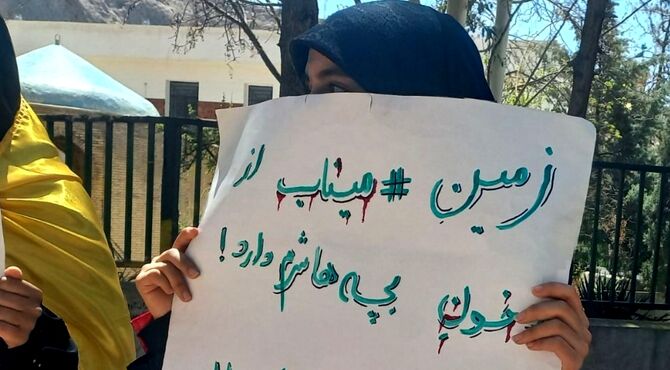 زمین #میناب از
خون بچه ها شرم دارد!